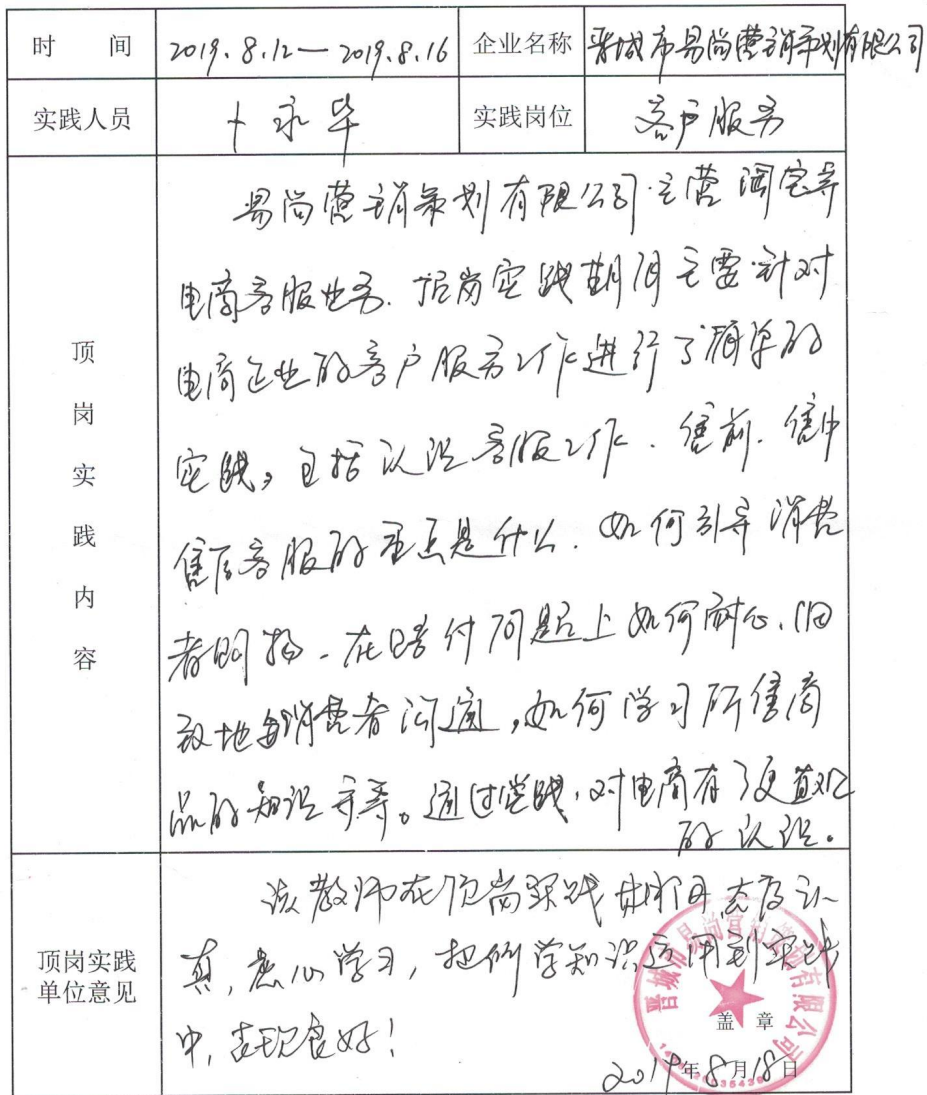 时 间 2019.8.12—2019.8.16 企业名称 晋城市易尚营销策划有限公司
实践人员 卜永华 实践岗位 客户服务
顶岗实践内容
易尚营销策划有限公司主营淘宝等
电商客服业务.顶岗实践期间主要针对
电商企业的客户服务工作进行了简单的
实践。包括认识客服工作、售前、售中
售后客服的重点是什么.如何引导消费
者购物、在赔付问题上如何耐心、细
致地与消费者沟通,如何学习所售商
品的知识等等。通过实践,对电商有了更直观
的认识。
顶岗实践
单位意见
该教师在顶岗实践期间态度认
真,虚心学习,把所学知识运用到实践
中,表现良好!
晋城市易尚营销策划有限公司
盖 章
2019年8月18日